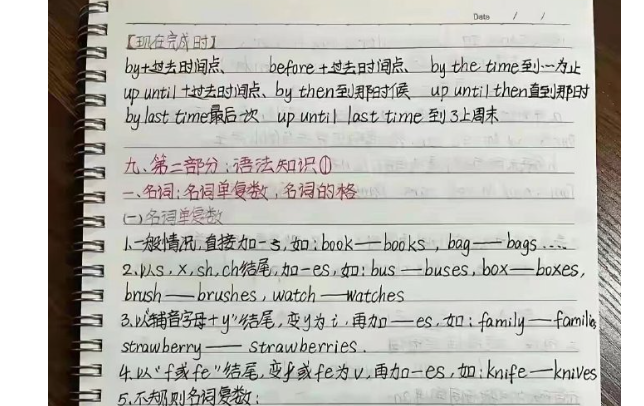 Date / /
【现在完成时】
by+过去时间点、 before+过去时间点、 by the time到…为止
up until+过去时间点、by then到那时候 up until then直到那时
by last time最后一次 up until last time 到了上周末
九、第二部分:语法知识①
一、名词:名词单复数,名词的格
(一)名词单复数
1.一般情况,直接加-s,如:book——books,bag——bags....
2.以s,x,sh,ch结尾,加-es,如:bus——buses,box——boxes,
brush——brushes,watch——watches
3.以“辅音字母+y”结尾,变y为i,再加—es,如:family——familie
strawberry——strawberries.
4.以“f或fe”结尾,变f或fe为v,再加-es,如:knife——knives
5.不规则名词复数: